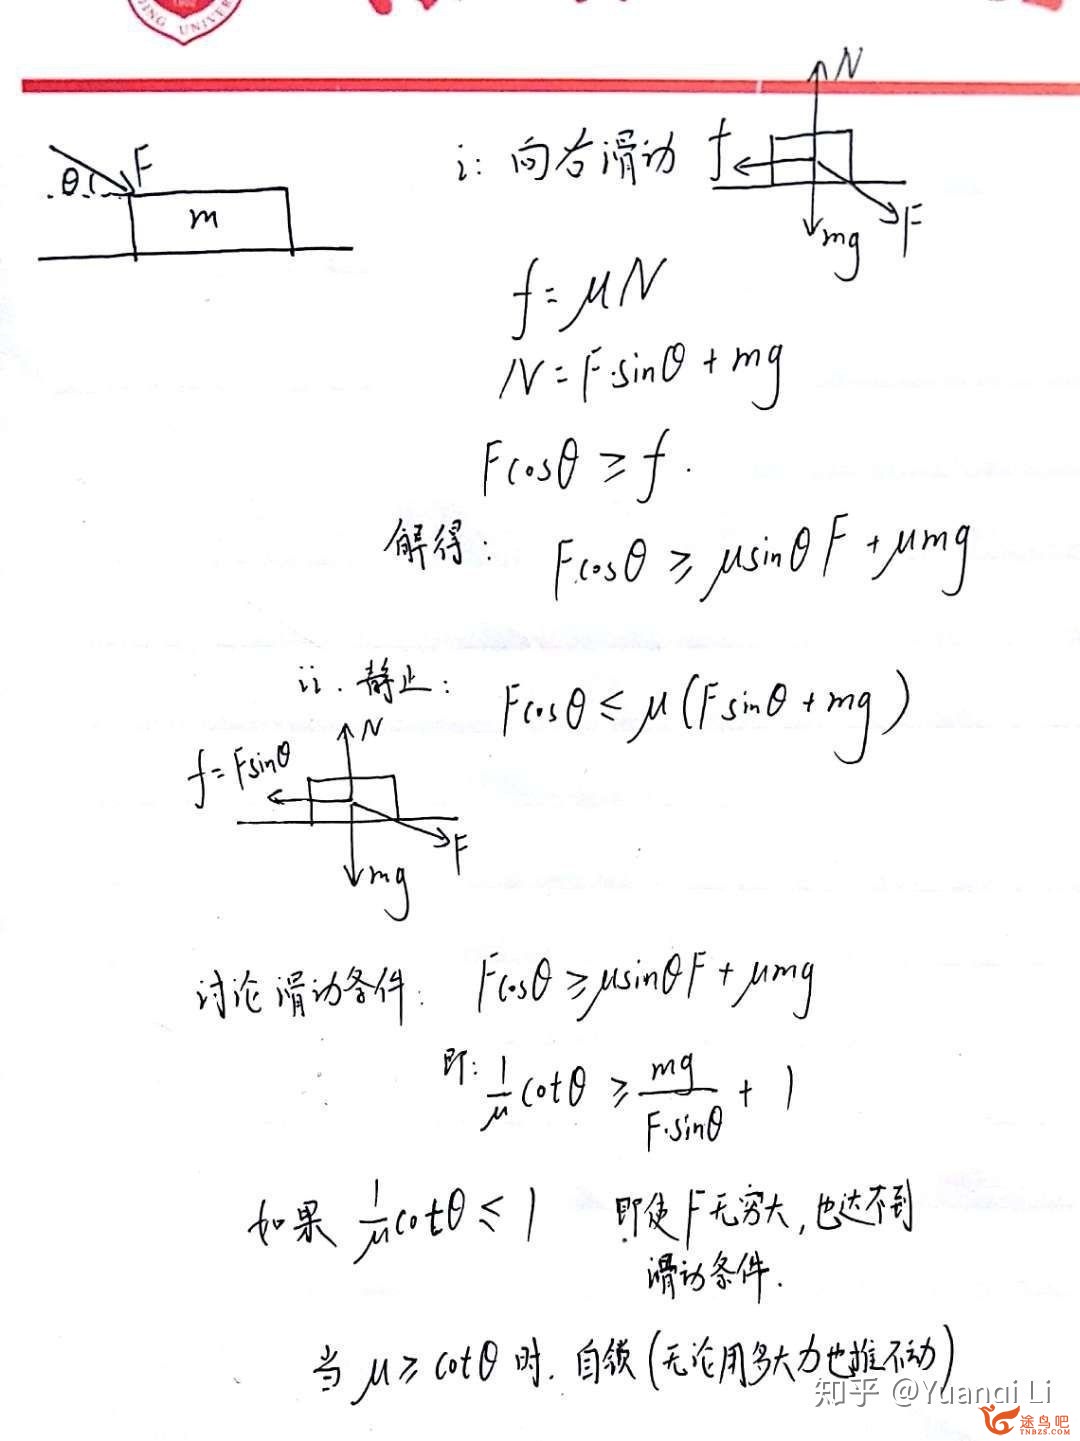 DING UNIVER
F
θ
m
i: 向右滑动
N
f
F
mg
f = μN
N = F·sinθ + mg
Fcosθ ≥ f.
解得: Fcosθ ≥ μsinθF + μmg
ii. 静止: Fcosθ ≤ μ(Fsinθ + mg)
N
f = Fsinθ
F
mg
讨论滑动条件: Fcosθ ≥ μsinθF + μmg
即: 1/μ cotθ ≥ mg/F·sinθ + 1
如果 1/μ cotθ ≤ 1 即使F无穷大, 也达不到
滑动条件.
当 μ ≥ cotθ 时. 自锁 (无论用多大力也推不动)
知乎 @Yuanqi Li
途鸟吧
TNBZS.COM